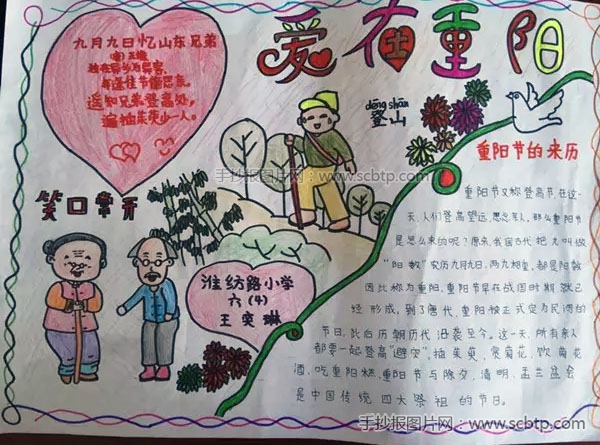 爱在重阳
九月九日忆山东兄弟
唐 王维
独在异乡为异客，
每逢佳节倍思亲。
遥知兄弟登高处，
遍插茱萸少一人。
dēng shān
登山
手抄报图片网-www.scbtp.com
重阳节的来历
笑口常开
重阳节又称登高节.在这一
天,人们登高望远,思念亲人,那么重阳节
是怎么来的呢?原来,我国古代把九叫做
"阳数"农历九月九日,两九相重,都是阳数
因此称为重阳,重阳节早在战国时期就已
经形成,到了唐代,重阳被正式定为民间的
节日,此后历朝历代沿袭至今。这一天,所有亲人
都要一起登高"避灾",插茱萸、赏菊花、饮菊花
酒,吃重阳糕,重阳节与除夕、清明、盂兰盆会
是中国传统四大祭祖的节日。
潍纺路小学
六(4)
王奕琳
手抄报图片网：www.scbtp.com